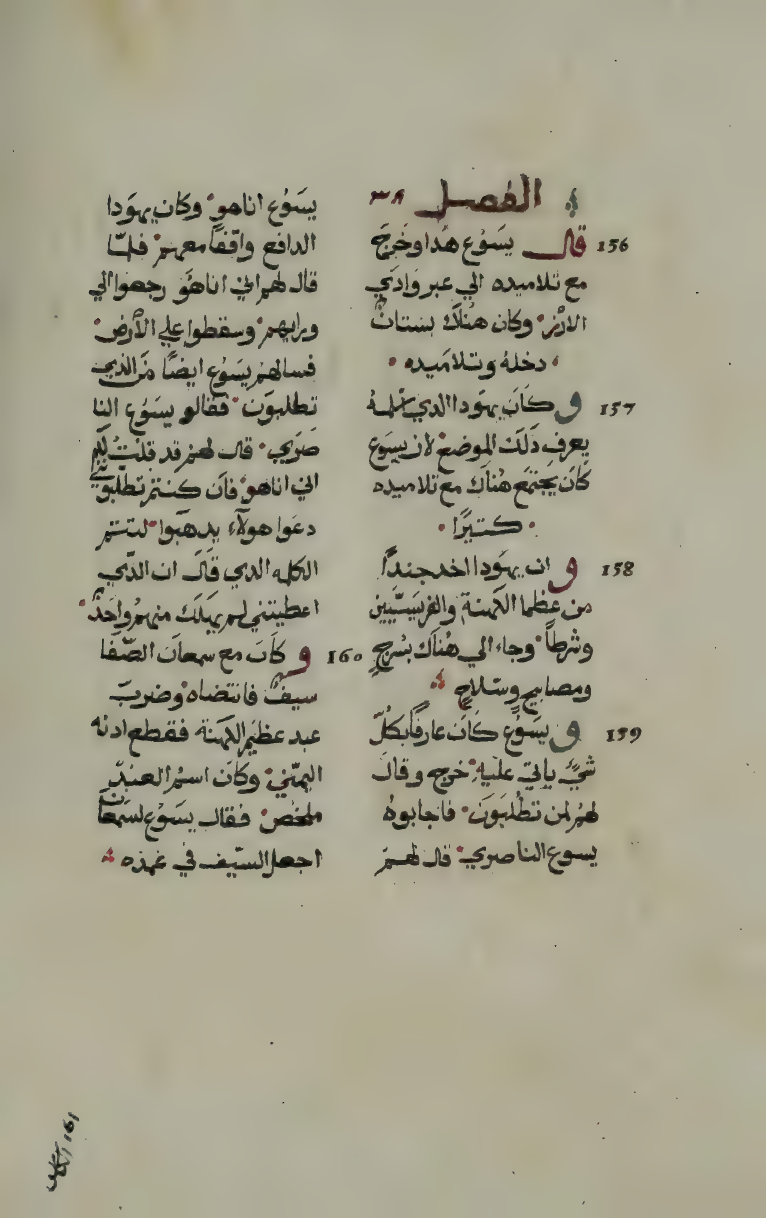 الفصل ٣٨
156 قال يسوع هدا وخرج
مع تلاميده الي عبر وادي
الارز وكان هناك بستان
دخله وتلاميده
157 وكان يهودا الدي
يعرف دلك الموضع لان يسوع
كان يجتمع هناك مع تلاميده
كتيرًا
158 وان يهودا اخد جندًا
من عظما الكهنة والفريسيين
وشرطًا وجاء الي هناك بسرج
ومصابيح وسلاح
159 ويسوع كان عارفًا بكل
شي ياتي عليه خرج وقال
لهم لمن تطلبون فاجابوه
يسوع الناصري قال لهم
يسوع اناهو وكان يهودا
الدافع واقفًا معهم فلما
قال لهم اني اناهو رجعوا الي
ورايهم وسقطوا علي الأرض
فسالهم يسوع ايضًا من الدي
تطلبون فقالو يسوع النا
صري قال لهم قد قلت لكم
اني اناهو فان كنتم تطلبوني
دعوا هولاء يدهبوا لتتم
الكلمه الدي قال ان الدي
اعطيتني لم يهلك منهم واحدٌ
160 وكان مع سمعان الصفا
سيفٌ فانتضاه وضرب
عبد عظيم الكهنة فقطع ادنه
اليمني وكان اسم العبد
ملخص فقال يسوع لسمعان
اجعل السيف في غمده
161